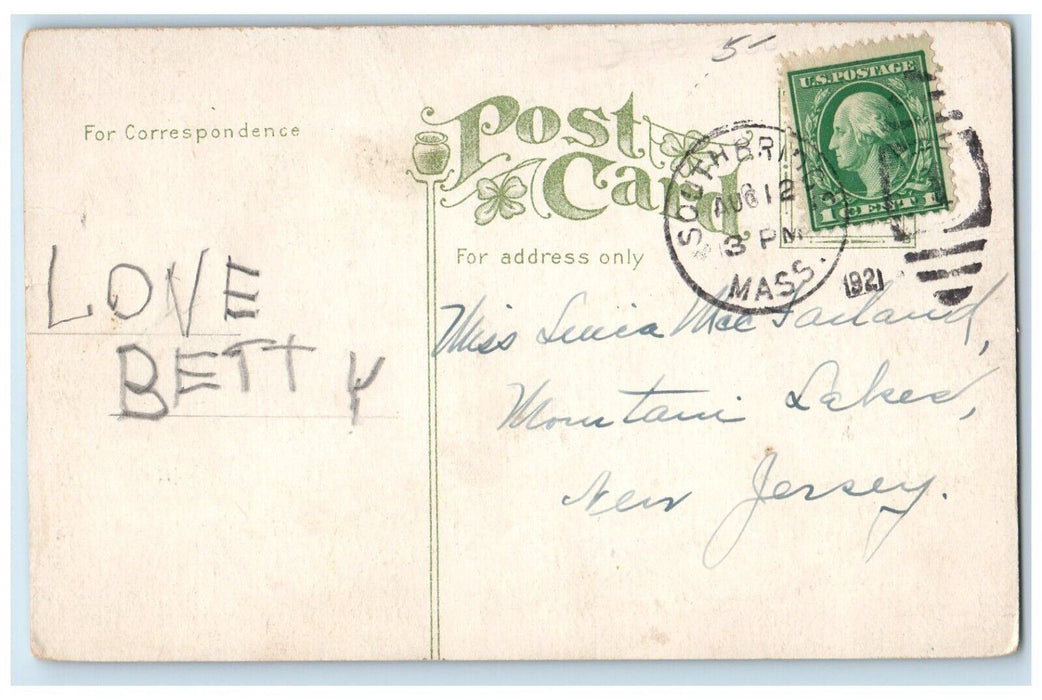 5-
For Correspondence
Post
Card
U.S. POSTAGE
1 CENT 1
SOUTHBRIDGE
AUG 12
3 PM
MASS.
1921
For address only
LOVE
BETTY
Miss Mac Farland,
Mountain Lakes,
New Jersey.